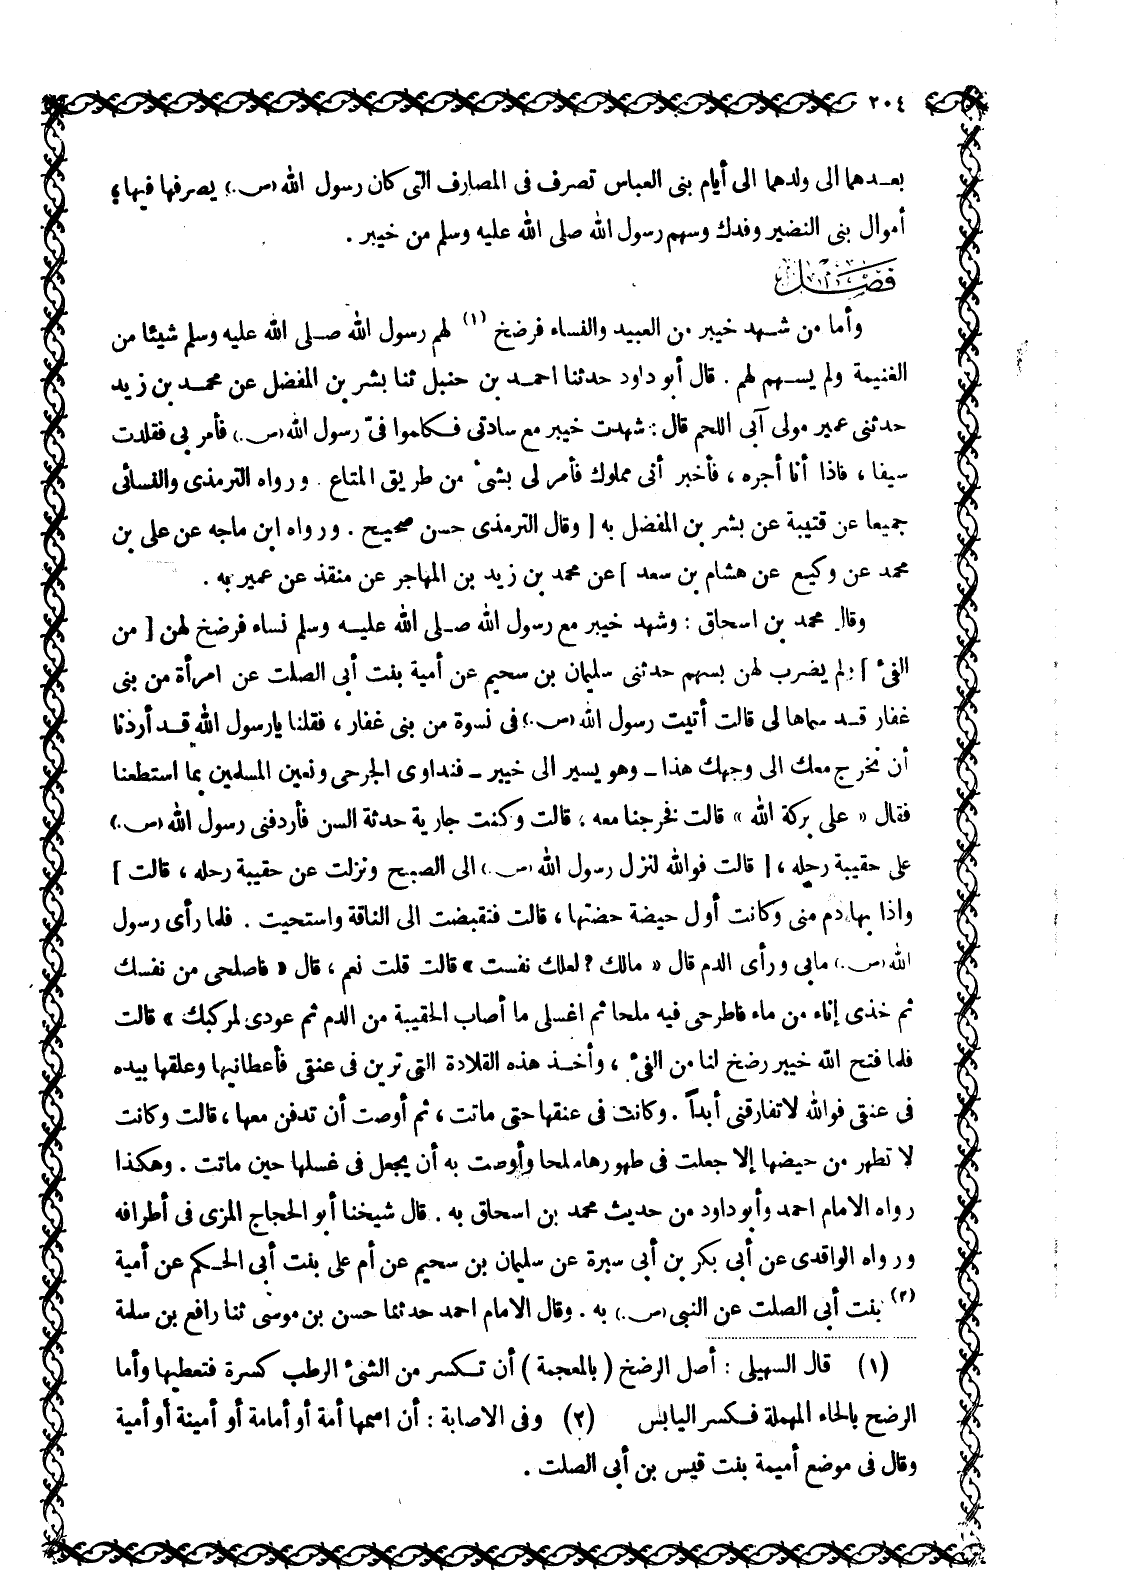 ٢٠٤
بعـدهما الى ولدهما الى أيام بنى العباس تصرف فى المصارف التى كان رسول الله (ص.) يصرفها فيها؛
أموال بنى النضير وفدك وسهم رسول الله صلى الله عليه وسلم من خيبر .
فصل
وأما من شـهد خيبر من العبيد والنساء فرضخ (١) لهم رسول الله صـلى الله عليه وسلم شيئا من
الغنيمة ولم يسـهم لهم . قال أبو داود حدثنا احمـد بن حنبل ثنا بشر بن المفضل عن محمـد بن زيد
حدثنى عمير مولى آبى اللحم قال : شهدت خيبر مع سادتى فـكلموا فىّ رسول الله (ص.) فأمر بى فقلدت
سيفا ، فاذا أنا أجره ، فأخبر أنى مملوك فأمر لى بشىء من طريق المتاع . ورواه الترمذى والنسائى
جميعا عن قتيبة عن بشر بن المفضل به [ وقال الترمذى حسن صحيح . ورواه ابن ماجه عن على بن
محمد عن وكيـع عن هشام بن سعد ] عن محمد بن زيد بن المهاجر عن منقذ عن عمير به .
وقال محمد بن اسحاق : وشهد خيبر مع رسول الله صـلى الله عليـه وسلم نساء فرضخ لهن [ من
الفىء ] ولم يضرب لهن بسهم حدثنى سليمان بن سحيم عن أمية بنت أبى الصلت عن امرأة من بنى
غفار قـد سماها لى قالت أتيت رسول الله (ص.) فى نسوة من بنى غفار ، فقلنا يارسول الله قـد أردنا
أن نخرج معك الى وجهك هذا ـ وهو يسير الى خيبر ـ فنداوى الجرحى ونعين المسلمين بما استطعنا
فقال « على بركة الله » قالت فخرجنا معه ، قالت وكنت جارية حدثة السن فأردفنى رسول الله (ص.)
على حقيبة رحله ، [ قالت فوالله لنزل رسول الله (ص.) الى الصبح ونزلت عن حقيبة رحله ، قالت ]
واذا بها دم منى وكانت أول حيضة حضتها ، قالت فتقبضت الى الناقة واستحيت . فلما رأى رسول
الله (ص.) مابى ورأى الدم قال « مالك ? لعلك نفست » قالت قلت نعم ، قال « فاصلحى من نفسك
ثم خذى إناء من ماء فاطرحى فيه ملحا ثم اغسلى ما أصاب الحقيبة من الدم ثم عودى لمركبك » قالت
فلما فتح الله خيبر رضخ لنا من الفىء ، وأخـذ هذه القلادة التى ترين فى عنقى فأعطانيها وعلقها بيده
فى عنقى فوالله لا تفارقنى أبداً . وكانت فى عنقها حتى ماتت ، ثم أوصت أن تدفن معها ، قالت وكانت
لا تطهر من حيضها إلا جعلت فى طهورها ملحا وأوصت به أن يجعل فى غسلها حين ماتت . وهكذا
رواه الامام احمد وأبو داود من حديث محمد بن اسحاق به . قال شيخنا أبو الحجاج المزى فى أطرافه
ورواه الواقدى عن أبى بكر بن أبى سبرة عن سليمان بن سحيم عن أم على بنت أبى الحـكم عن أمية
(٢) بنت أبى الصلت عن النبى (ص.) به . وقال الامام احمد حدثنا حسن بن موسى ثنا رافع بن سلمة
(١) قال السهيلى : أصل الرضخ ( بالمعجمة ) أن تـكسر من الشىء الرطب كسرة فتعطيها وأما
الرضح بالحاء المهملة فـكسر اليابس (٢) وفى الاصابة : أن اسمها أمة أو أمامة أو أمينة أو أمية
وقال فى موضع أميمة بنت قيس بن أبى الصلت .